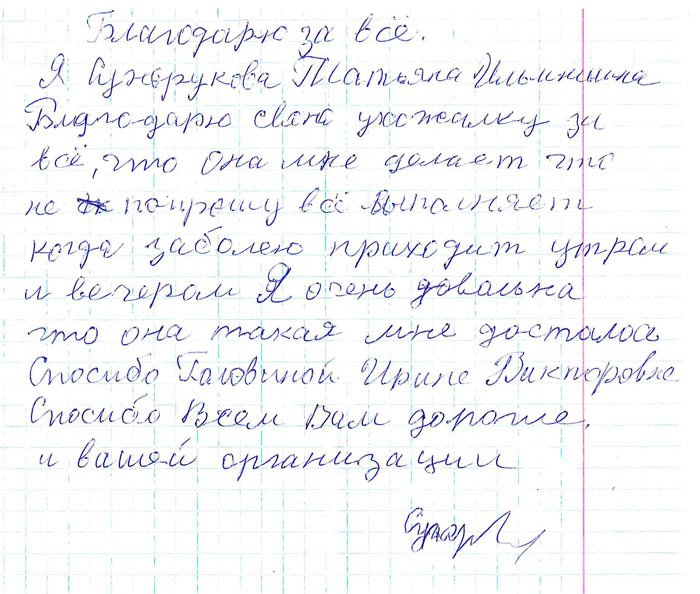 Благодарю за всё.
Я Сухорукова Татьяна Ильинишна
Благодарю свою ухожалку за
всё, что она мне делает что
не попрошу всё выполняет
когда заболею приходит утром
и вечером Я очень довольна
что она такая мне досталось
Спосибо Головиной Ирине Викторовне
Спосибо Всем Вам дорогие,
и вашей организации